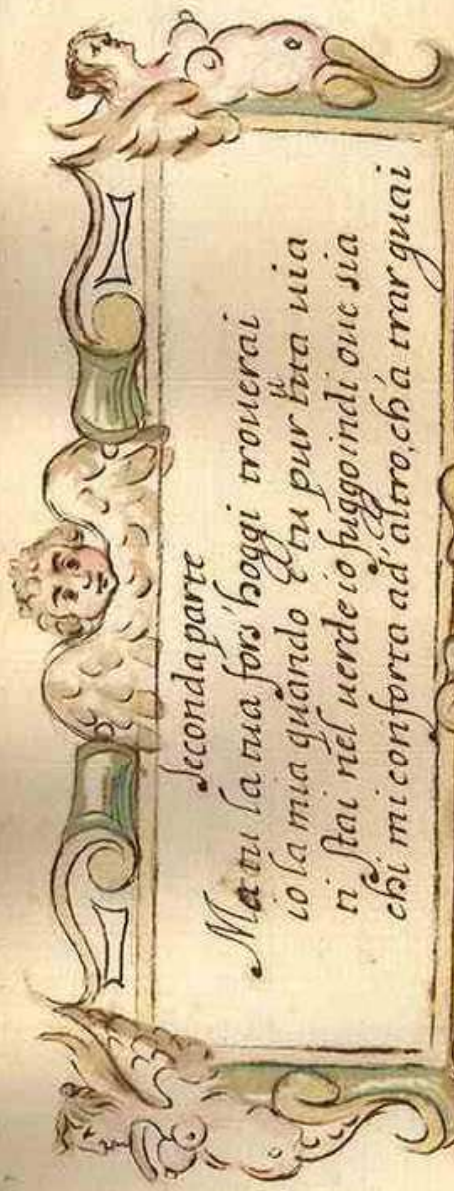 Seconda parte
Ma tu la tua fors' hoggi trouerai
io la mia quando e tu pur tuta uia
ti stai nel uerde io fuggo indi oue sia
chi mi conforta ad' altro, ch' a trar guai